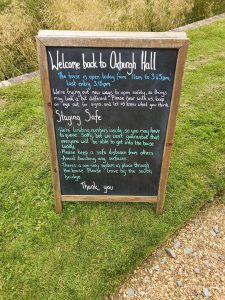 Welcome back to Oxburgh Hall
The house is open today from 11am to 3.45pm,
last entry 3.15pm
We're trying out new ways to open safely, so things
may look a bit different. Please bear with us, keep
an eye out for signs, and let us know what you think
Staying Safe
- We're limiting numbers inside, so you may have
to queue. Sorry, but we can't guarantee that
everyone will be able to get into the house
today.
- Please keep a safe distance from others
- Avoid touching any surfaces
- There's a one-way system in place through
the house. Please leave by the south
bridge.
Thank you